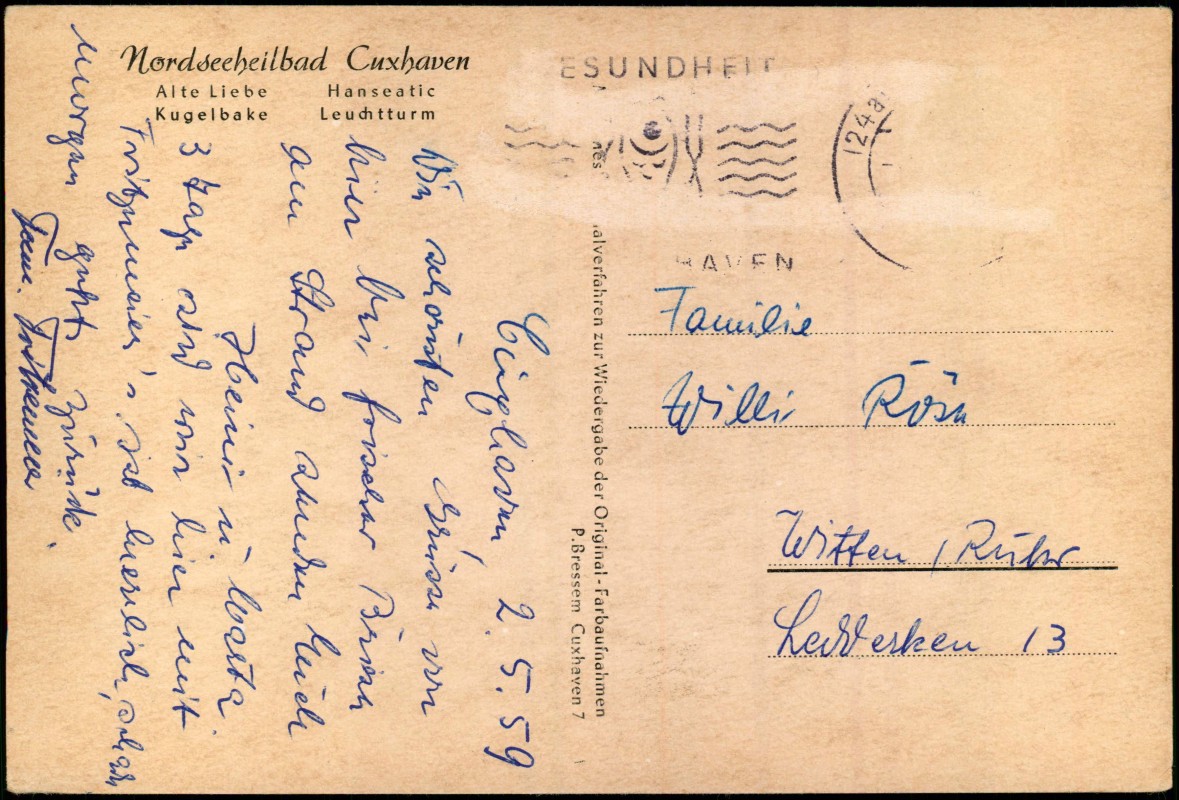 Nordseeheilbad Cuxhaven
Alte Liebe Hanseatic
Kugelbake Leuchtturm
ESUNDHEIT
124a
HAVEN
alverfahren zur Wiedergabe der Original-Farbaufnahmen
P. Bressem Cuxhaven 7
Cuxhaven 2.5.59
Die schönsten Grüsse von
hier bei frischer Briese
am Strand senden Euch
Heini u. Marta
3 Tage sind wir hier mit
Fritzmeier's, ist herrlich, schon
morgen geht's zurück.
Fam.
Familie
Willi
Witten / Ruhr
13